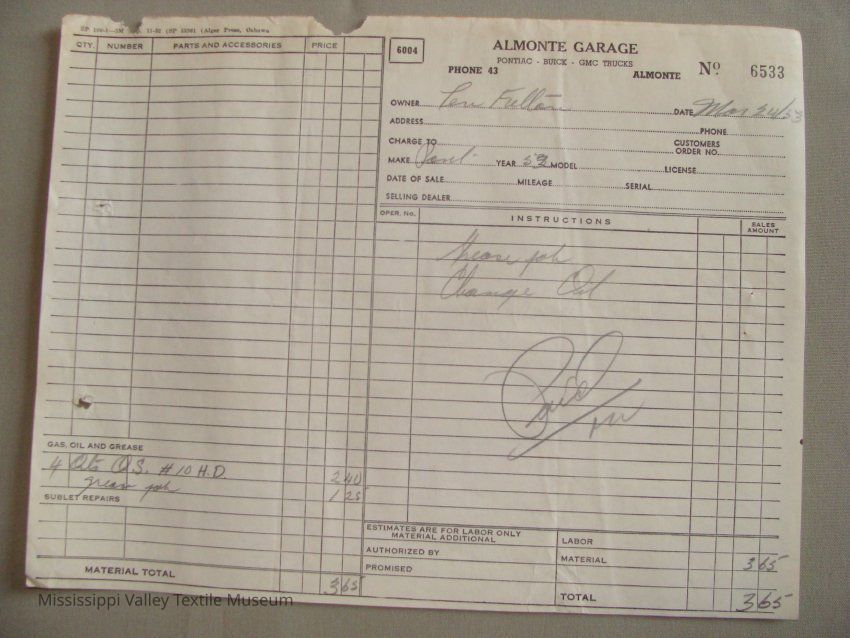 11-52 (Alger Press, Oshawa
QTY. NUMBER PARTS AND ACCESSORIES PRICE
GAS, OIL AND GREASE
4 Qts O.S. #10 H.D. 2 40
greas job 1 25
SUBLET REPAIRS
MATERIAL TOTAL 3 65
6004
ALMONTE GARAGE
PONTIAC - BUICK - GMC TRUCKS
PHONE 43 ALMONTE No. 6533
OWNER Fulton DATE Mar 24/53
ADDRESS PHONE
CHARGE TO CUSTOMERS ORDER NO.
MAKE YEAR 52 MODEL LICENSE
DATE OF SALE MILEAGE SERIAL
SELLING DEALER
OPER. No. INSTRUCTIONS SALES AMOUNT
Grease job
Change Oil
Paid
ESTIMATES ARE FOR LABOR ONLY
MATERIAL ADDITIONAL
LABOR
AUTHORIZED BY
MATERIAL 3 65
PROMISED
TOTAL 3 65
Mississippi Valley Textile Museum